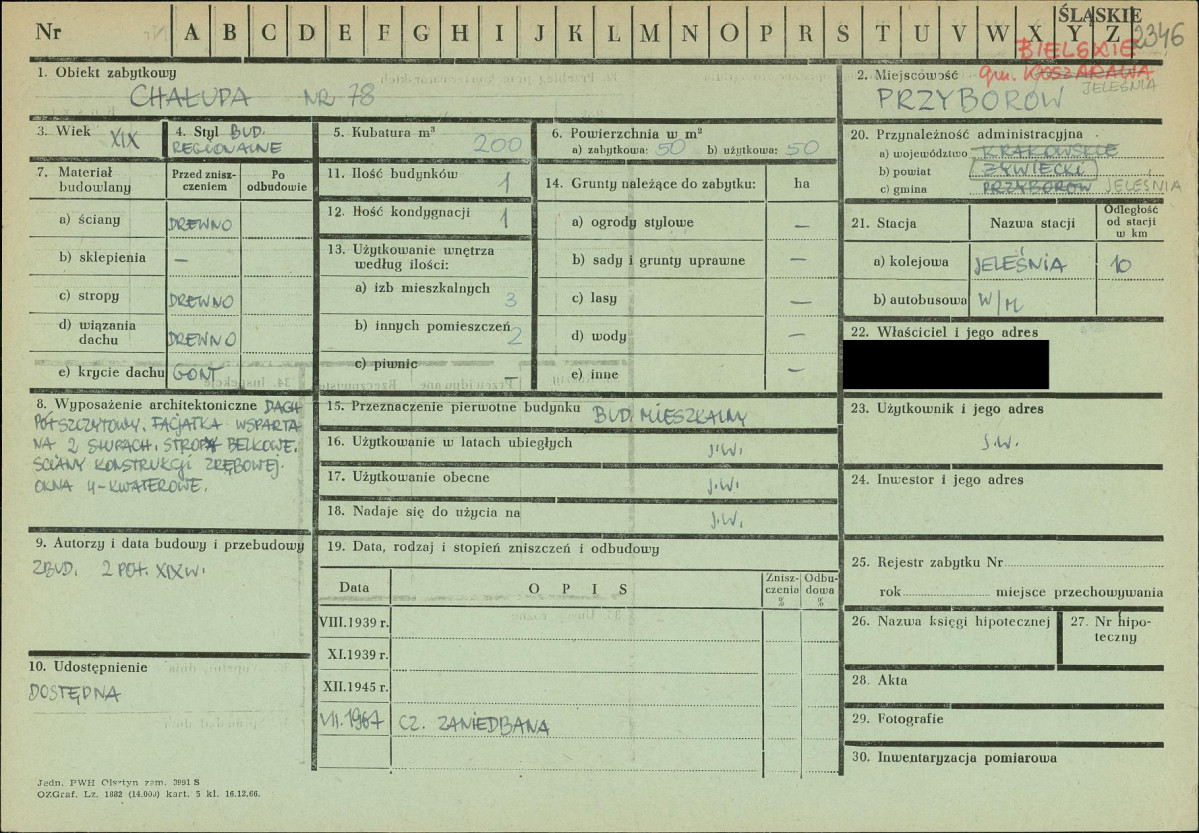 Nr A B C D E F G H I J K L M N O P R S T U V W X Y Z
ŚLĄSKIE
2346
BIELSKIE
1. Obiekt zabytkowy
CHAŁUPA NR 78
2. Miejscowość gm. KOSZARAWA
JELEŚNIA
PRZYBORÓW
3. Wiek XIX
4. Styl BUD.
REGIONALNE
5. Kubatura m³
200
6. Powierzchnia w m²
a) zabytkowa: 50 b) użytkowa: 50
7. Materiał budowlany
Przed zniszczeniem
Po odbudowie
a) ściany DREWNO
b) sklepienia —
c) stropy DREWNO
d) wiązania dachu DREWNO
e) krycie dachu GONT
11. Ilość budynków 1
12. Ilość kondygnacji 1
13. Użytkowanie wnętrza
według ilości:
a) izb mieszkalnych 3
b) innych pomieszczeń 2
c) piwnic —
14. Grunty należące do zabytku: ha
a) ogrody stylowe —
b) sady i grunty uprawne —
c) lasy —
d) wody —
e) inne —
20. Przynależność administracyjna
a) województwo KRAKOWSKIE
b) powiat ŻYWIECKI
c) gmina PRZYBORÓW JELEŚNIA
21. Stacja
Nazwa stacji
Odległość od stacji w km
a) kolejowa JELEŚNIA 10
b) autobusowa W/M
22. Właściciel i jego adres
8. Wyposażenie architektoniczne DACH
PÓŁSZCZYTOWY. FACJATKA WSPARTA
NA 2 SŁUPACH. STROPY BELKOWE.
ŚCIANY KONSTRUKCJI ZRĘBOWEJ.
OKNA 4-KWATEROWE.
15. Przeznaczenie pierwotne budynku BUD. MIESZKALNY
16. Użytkowanie w latach ubiegłych J.W.
17. Użytkowanie obecne J.W.
18. Nadaje się do użycia na J.W.
23. Użytkownik i jego adres
J.W.
24. Inwestor i jego adres
9. Autorzy i data budowy i przebudowy
ZBUD. 2 POŁ. XIX W.
10. Udostępnienie
DOSTĘPNA
19. Data, rodzaj i stopień zniszczeń i odbudowy
Data
OPIS
Zniszczenia %
Odbudowa %
VIII.1939 r.
XI.1939 r.
XII.1945 r.
VII.1967 CZ. ZANIEDBANA
25. Rejestr zabytku Nr
rok miejsce przechowywania
26. Nazwa księgi hipotecznej
27. Nr hipoteczny
28. Akta
29. Fotografie
30. Inwentaryzacja pomiarowa
Jedn. PWH Olsztyn zam. 3991 S
OZGraf. Lz. 1882 (14.000) kart. 5 kl. 16.12.66.